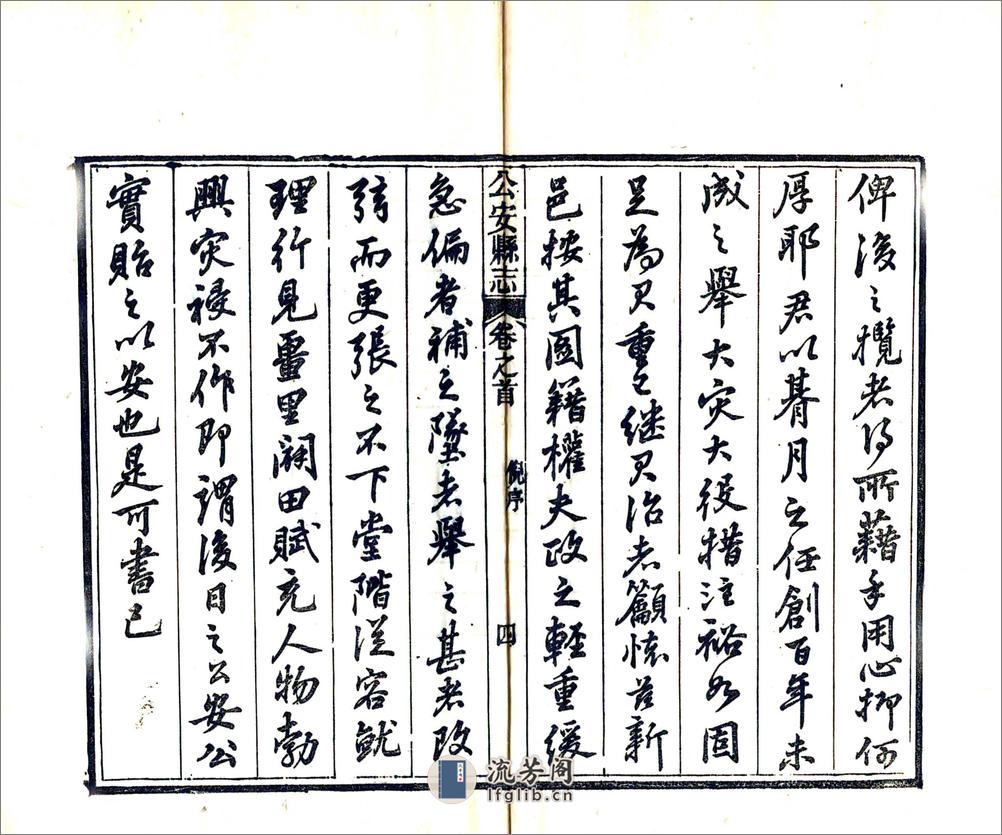 俾後之攬者得所藉手用心抑何
厚耶君以朞月之任創百年未
成之舉大灾大役措注裕如固
足為君重已继君治者籲懷茲新
邑按其圖籍權夫政之輕重緩
公安縣志 卷之首 倪序 四
急偏者補之墜者舉之甚者改
弦而更張之不下堂階從容就
理行見畺里闢田賦充人物勃
興灾祲不作即謂後日之公安公
實貽之以安也是可書已
流芳阁
lfglib.cn